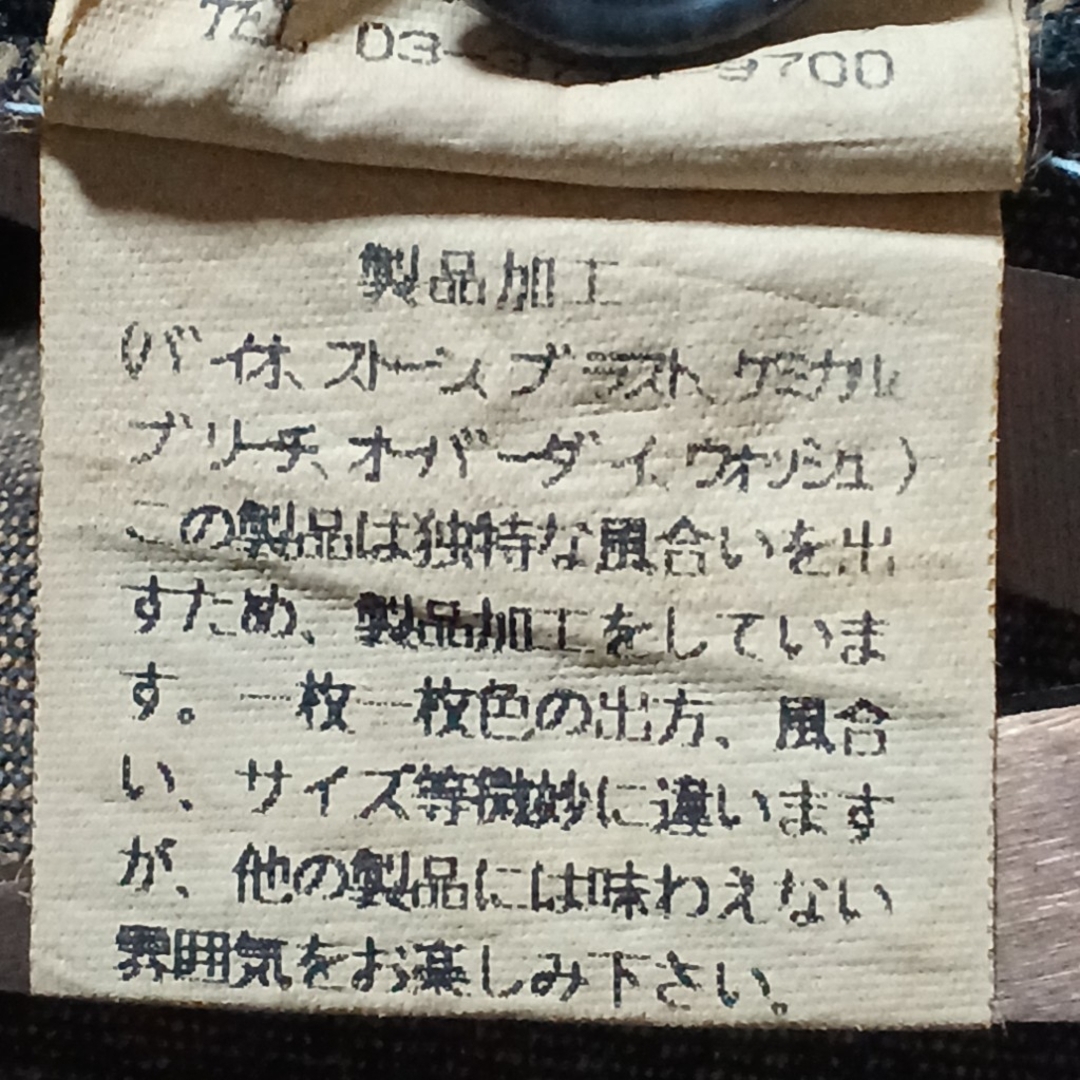 TEL 03- -9700
製品加工
(バイオ、ストーン、ブラスト、ケミカル
ブリーチ、オーバーダイ、ウォッシュ)
この製品は独特な風合いを出
すため、製品加工をしていま
す。一枚一枚色の出方、風合
い、サイズ等微妙に違います
が、他の製品には味わえない
雰囲気をお楽しみ下さい。